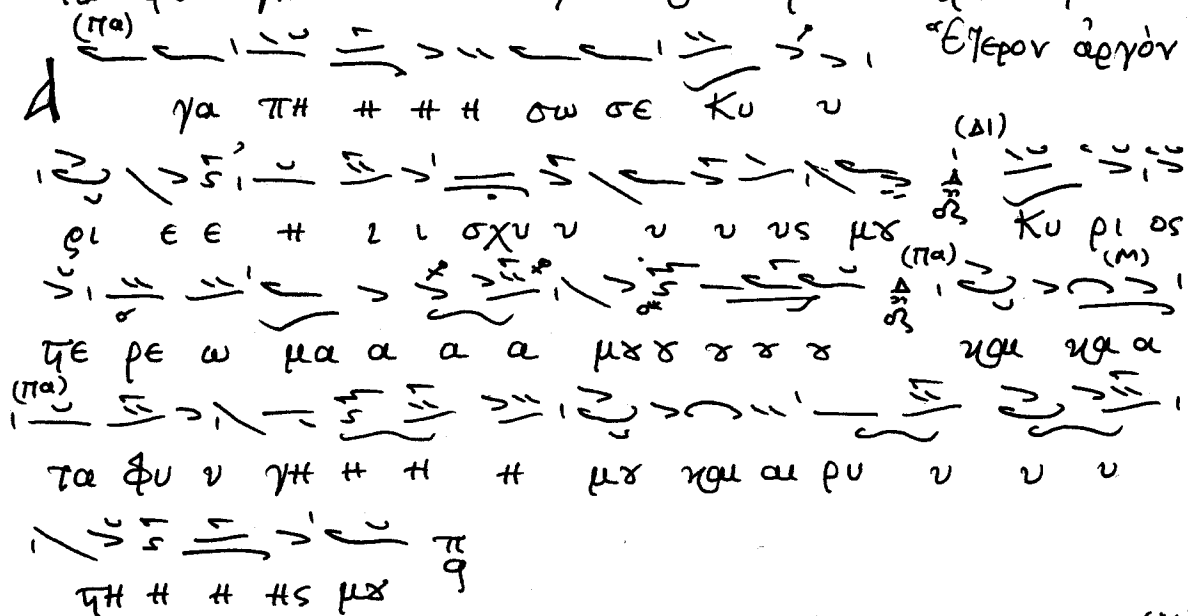 (Πα)
Ἕτερον ἀργόν
Α γα πη η η η σω σε Κυ υ
(Δι)
ρι ε ε η ι ι σχυ υ υ υ υς μȣ Κυ ρι ος
(Πα) (Μ)
ϛε ρε ω μα α α α μȣ ȣ ȣ ȣ ȣ και κα α
(Πα)
τα φυ υ γη η η η μȣ και αι ρυ υ υ υ
ϛη η η ης μȣ π q